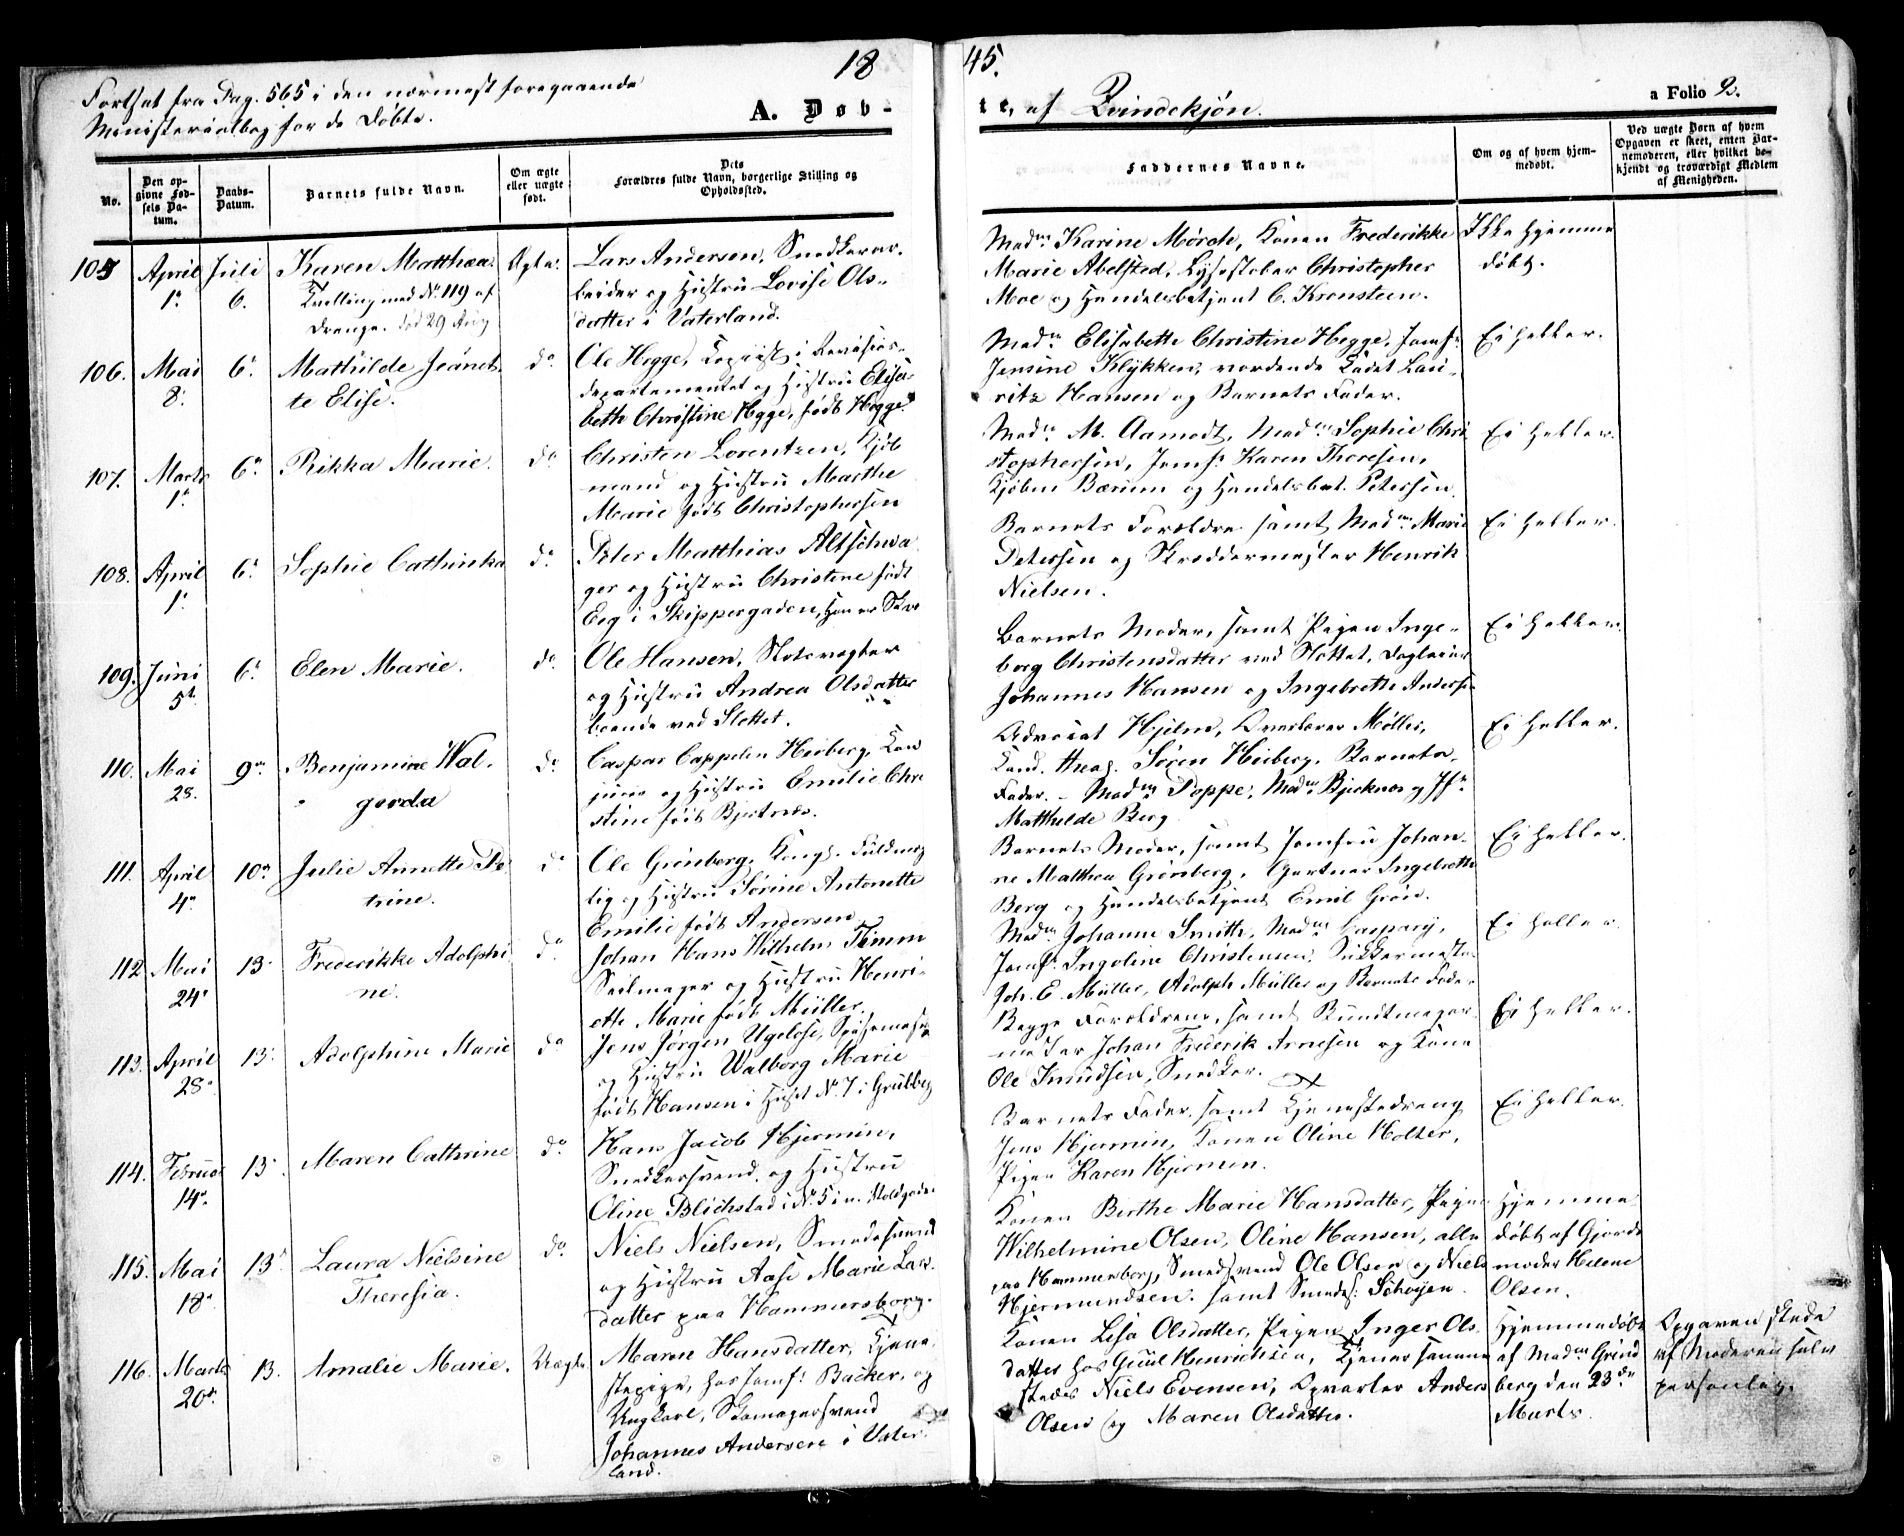 18 45.
Fortsat fra Pag. 565 i den nærmest foregaaende
Ministerialbog for de Døbte.
A. Døb-
te, af Qvindekjøn.
a Folio 2.
No.
Den op-
givne Fød-
sels Da-
tum.
Daabs-
Datum.
Barnets fulde Navn.
Om ægte
eller uægte
født.
Dets
Forældres fulde Navn, borgerlige Stilling og
Opholdssted.
Faddernes Navne.
Om og af hvem hjem-
medøbt.
Ved uægte Børn af hvem
Opgaven er skeet, enten Bar-
nemoderen, eller hvilket be-
kjendt og troværdigt Medlem
af Menigheden.
105 April 1. Juli 6. Karen Matthea.
Tvilling med No. 119 af
Drenge. død 29 Aug
Ægte.
Lars Andersen, Snedkerar-
beider og Hustru Lovise Ols-
datter i Vaterland.
Madm. Karine Mørch, Konen Frederikke
Marie Abelsted, Lysestøber Christopher
Moe og Handelsbetjent C. Kronsteen.
Ikke hjemme
døbt.
106. Mai 8. 6. Mathilde Jeanet-
te Elise.
do
Ole Hegge, Kopiist i Revisions-
departementet og Hustru Elisa-
beth Christine Hegge, født Hegge.
Madm. Elisabeth Christine Hegge, Jomf.
Jensine Klykken, vordende Kadet Lau-
ritz Hansen og Barnets Fader.
Ei heller.
107. Marts 1. 6. Rikka Marie.
do
Christen Lorentzen, Kjøb
mand og Hustru Marthe
Marie født Christophersen
Madm. M. Aamodt, Madm. Sophie Chri
stophersen, Jomf. Karen Thoresen,
Kjøbm Bærum og Handelsbet. Petersen.
Ei heller.
108. April 1. 6. Sophie Cathinka
do
Peter Matthias Altschwa
ger og Hustru Christine født
Eeg i Skippergaden,
Barnets Forældre samt Madm. Marie
Petersen og Skræddermester Henrik
Nielsen.
Ei heller.
109. Juni 5t. 6. Elen Marie.
do
Ole Hansen, Slotsvagter
og Hustru Andrea Olsdatter
boende ved Slottet.
Barnets Moder, samt Pigen Inge-
borg Christensdatter ved Slottet, Dagleier
Johannes Hansen og Ingebrette Anderse
Ei heller.
110. Mai 28. 9. Benjamine Wal-
gerda
do
Caspar Cappelen Heiberg, Kan
juris og Hustru Emilie Chri
stine født Bjerknæs.
Advocat Hjelm, Overlærer Møller,
Kand. theol. Søren Heiberg, Barnets
Fader. - Madm Poppe, Madm. Bjerknæs og Jfr.
Matthilde Berg.
Ei heller.
111. April 4. 10. Julie Annette Pe-
trine.
do
Ole Grønberg, Kongl. Fuldmæg
tig og Hustru Sørine Antonette
Emilie født Andersen
Barnets Moder, samt Jomfru Johan-
ne Matthea Grønberg, Gartner Ingebrette
Berg og Handelsbetjent Emil Grøn.
Ei heller.
112 Mai 24. 13. Frederikke Adolphi
ne.
do
Johan Hans Wilhelm Timm
Seilmager og Hustru Henri-
ette Marie født Müller.
Madm. Johanne Smith, Madm. Caspary,
Jomf. Ingoline Christensen, Sukkermester
Joh. E. Müller, Adolph Müller og Barnets Fader.
Ei heller.
113. April 28. 13. Adolphine Marie
do
Jens Jørgen Ugelose,
og Hustru Walborg Marie
født Hansen i Huset No. 7 i Grubbeg
Begge Forældrene, samt Bundtmager-
mester Johan Frederik Arnesen og Kone
Ole Knudsen, Snedker.
Ei heller.
114. Februar 14. 13. Maren Cathrine
do
Hans Jacob Hjermin,
Snedkersvend, og Hustru
Oline Blichstad i No. 5 i n. Voldgade.
Barnets Fader, samt Tjenestedreng
Jens Hjermin, Konen Oline Holter,
Pigen Karen Hjermin.
Ei heller.
115. Mai 18. 13. Laura Nielsine
Theresia.
do
Niels Nielsen, Smedesvend
og Hustru Aase Marie Lars-
datter paa Hammersborg.
Konen Berthe Marie Hansdatter, Pigen
Wilhelmine Olsen, Oline Hansen, alle
paa Hammersborg, Smedsvend Ole Olsen og Niels
Hjermundsen. samt Smeds. Schøyen.
Hjemme
døbt af Gjorde
moder Helene
Olsen.
116. Marts 20de 13. Amalie Marie.
Uægte
Maren Hansdatter, Tjene
stepige, hos Jomf. Backer, og
Ungkarl, Skomagersvend
Johannes Andersen i Vater-
land.
Konen Lisa Olsdatter, Pigen Inger Ols-
datter hos Guul Henrichsen, Tjener samme
steds Niels Evensen, Opvarter Anders
Olsen og Maren Olsdatter.
Hjemmedøbt
af Madm. Grind
berg den 23de
Marts.
Opgaven skede
af Moderen selv
personlig.